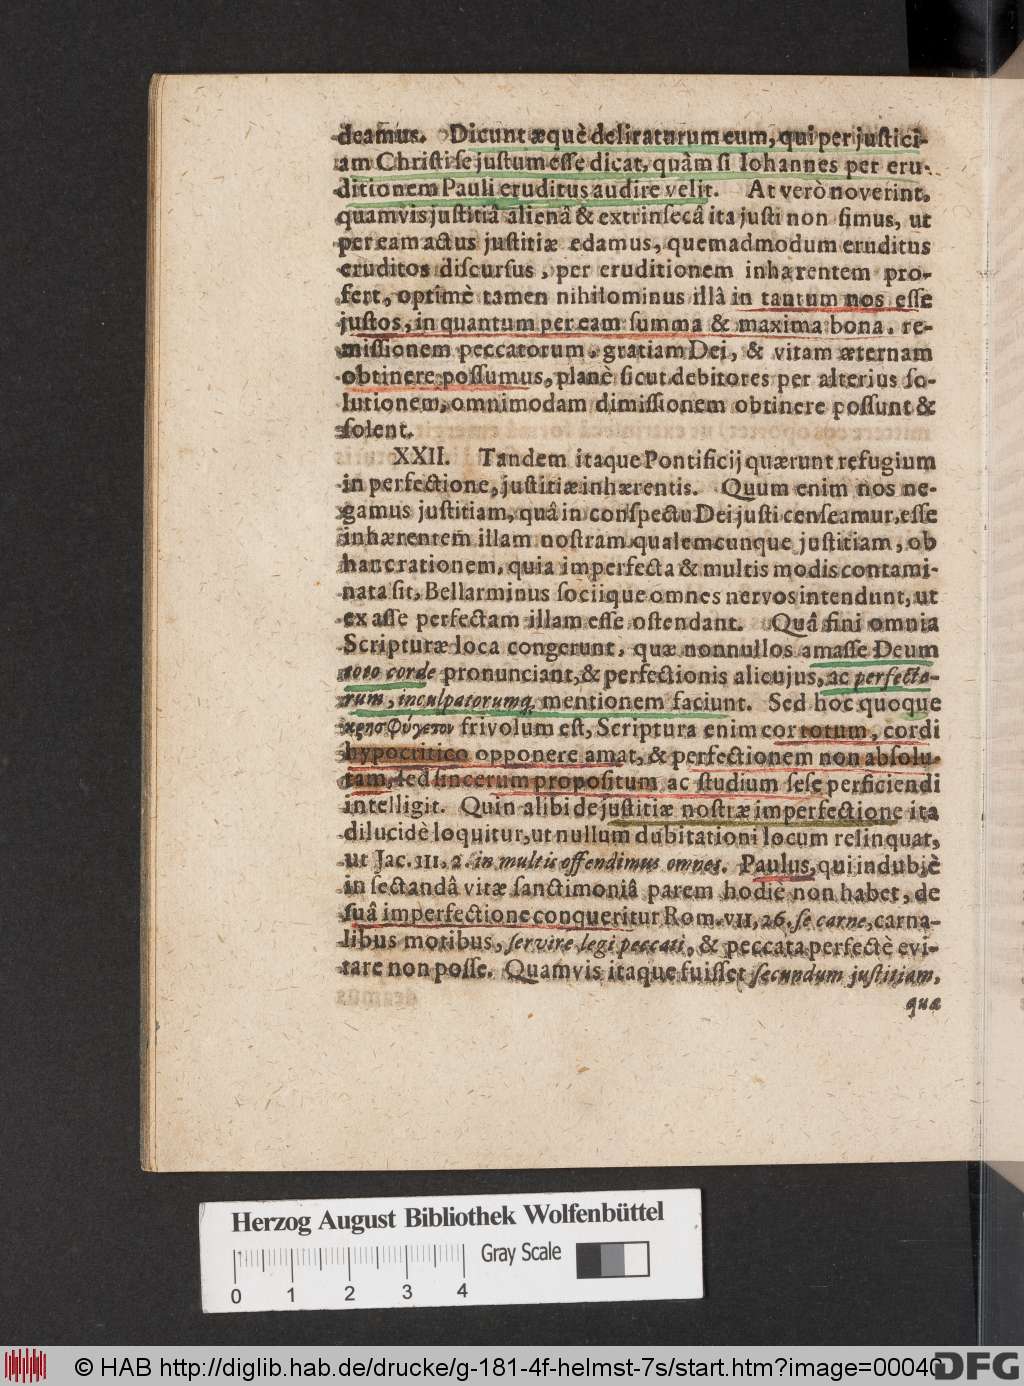 deamus. Dicunt æquè deliraturum eum, qui per justici-
am Christi se justum esse dicat, quàm si Iohannes per eru-
ditionem Pauli eruditus audire velit. At verò noverint,
quamvis justitiâ alienâ & extrinsecâ ita justi non simus, ut
per eam actus justitiæ edamus, quemadmodum eruditus
eruditos discursus, per eruditionem inhærentem pro-
fert, optimè tamen nihilominus illâ in tantum nos esse
justos, in quantum per eam summa & maxima bona, re-
missionem peccatorum, gratiam Dei, & vitam æternam
obtinere possumus, planè sicut debitores per alterius so-
lutionem, omnimodam dimissionem obtinere possunt &
solent.
XXII. Tandem itaque Pontificij quærunt refugium
in perfectione, justitiæ inhærentis. Quum enim nos ne-
gamus justitiam, quâ in conspectu Dei justi censeamur, esse
inhærentem illam nostram qualemcunque justitiam, ob
hanc rationem, quia imperfecta & multis modis contami-
nata sit, Bellarminus sociique omnes nervos intendunt, ut
ex asse perfectam illam esse ostendant. Quâ fini omnia
Scripturæ loca congerunt, quæ nonnullos amasse Deum
toto corde pronunciant, & perfectionis alicujus, ac perfecto-
rum, inculpatorumq; mentionem faciunt. Sed hoc quoque
κρησφύγετον frivolum est, Scriptura enim cor totum, cordi
hypocritico opponere amat, & perfectionem non absolu-
tam, sed sincerum propositum ac studium sese perficiendi
intelligit. Quin alibi de justitiæ nostræ imperfectione ita
dilucidè loquitur, ut nullum dubitationi locum relinquat,
ut Jac. III, 2. in multis offendimus omnes. Paulus, qui indubiè
in sectandâ vitæ sanctimoniâ parem hodie non habet, de
suâ imperfectione conqueritur Rom. VII, 26, se carne, carna-
libus motibus, servire legi peccati, & peccata perfectè evi-
tare non posse. Quamvis itaque fuisset secundum justitiam,
quæ
Herzog August Bibliothek Wolfenbüttel
Gray Scale
0 1 2 3 4
© HAB http://diglib.hab.de/drucke/g-181-4f-helmst-7s/start.htm?image=00040
DFG